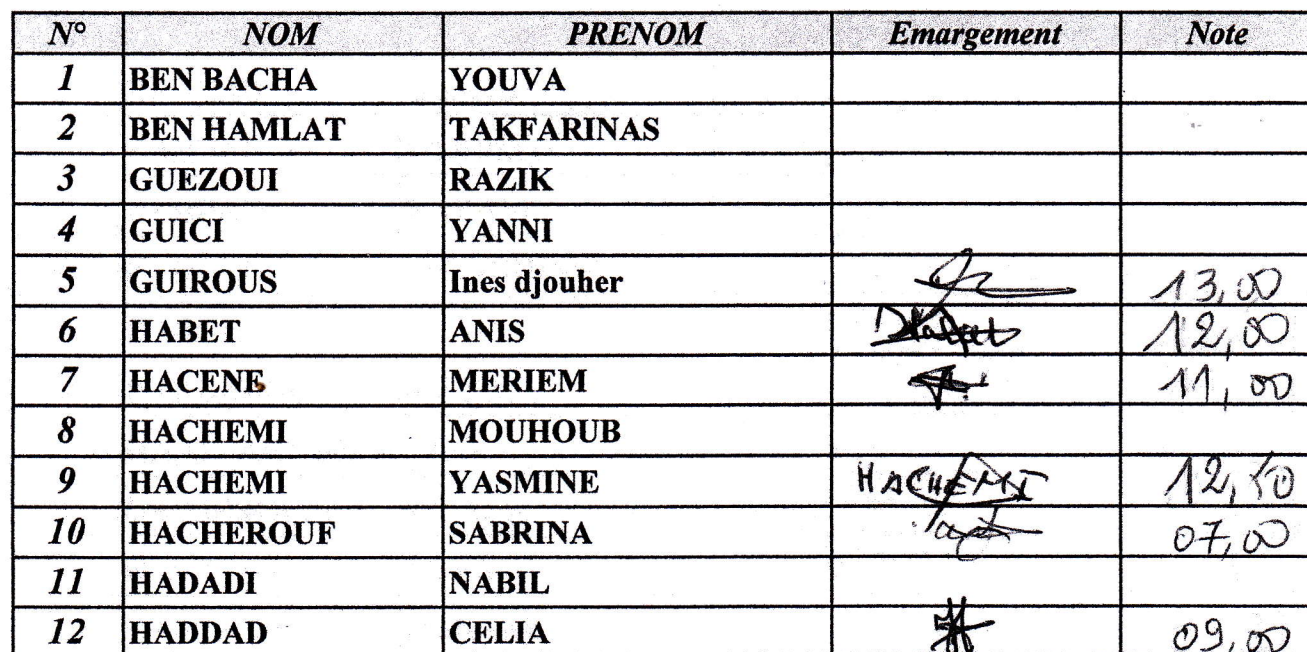 N° NOM PRENOM Emargement Note
1 BEN BACHA YOUVA
2 BEN HAMLAT TAKFARINAS
3 GUEZOUI RAZIK
4 GUICI YANNI
5 GUIROUS Ines djouher 13,00
6 HABET ANIS 12,00
7 HACENE MERIEM 11,00
8 HACHEMI MOUHOUB
9 HACHEMI YASMINE HACHEMI 12,50
10 HACHEROUF SABRINA 07,00
11 HADADI NABIL
12 HADDAD CELIA 09,00